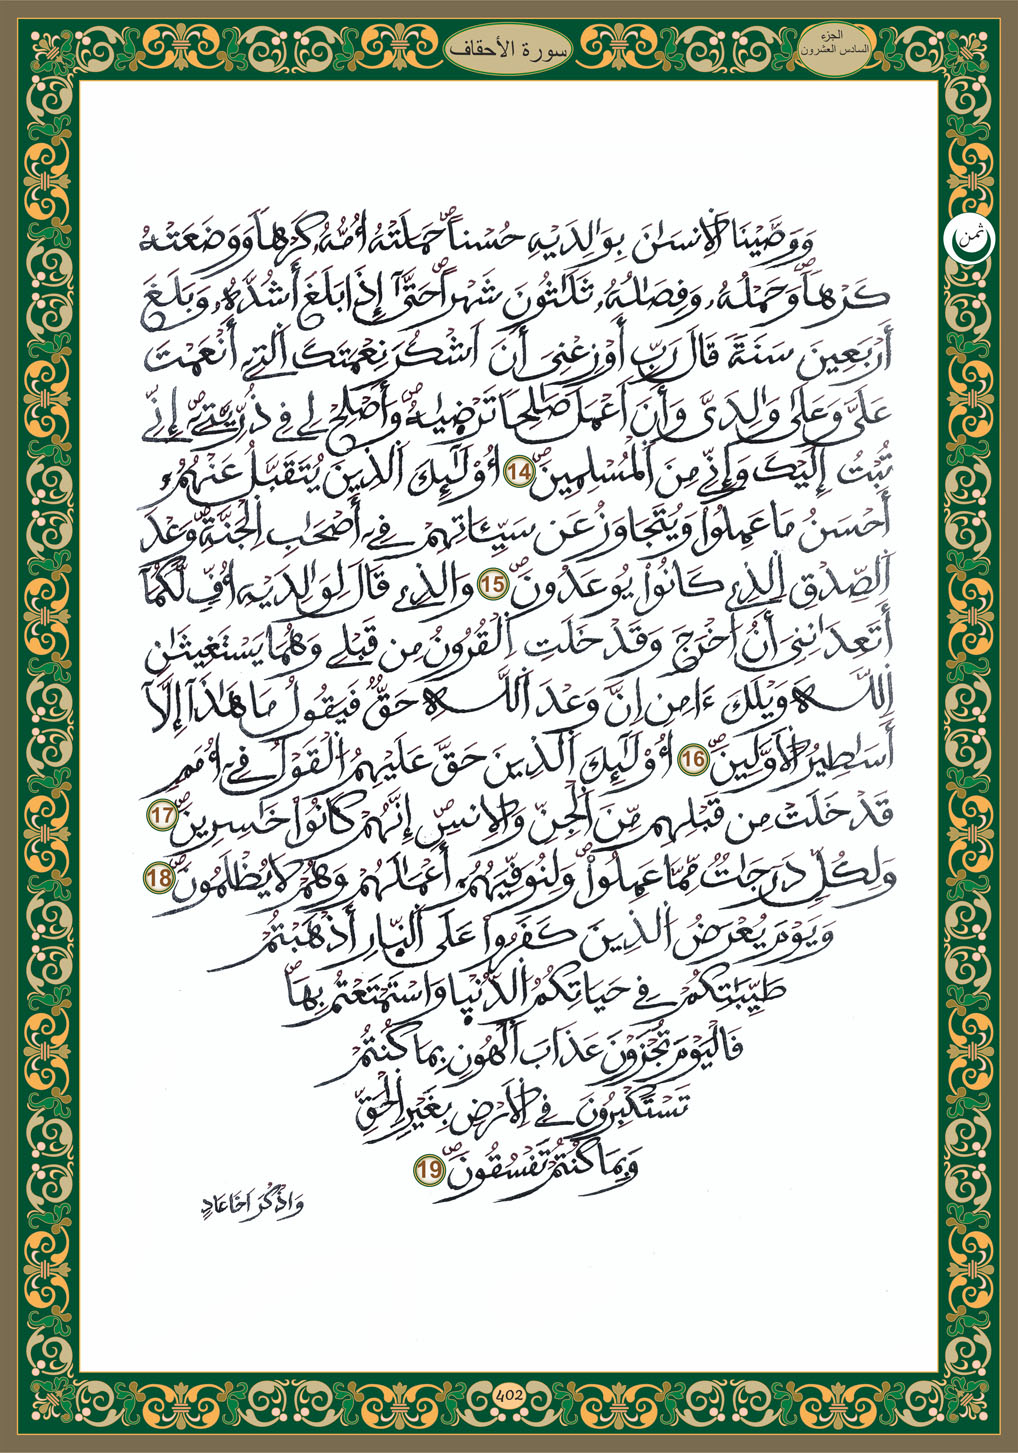 الجزء
السادس العشرون
سورة الأحقاف
ثمن
وَوَصَّيْنَا اَلِانسَٰنَ بِوَٰلِدَيْهِ حُسْناًۖ حَمَلَتْهُ أُمُّهُۥ كَرْهاً وَوَضَعَتْهُ
كَرْهاًۖ وَحَمْلُهُۥ وَفِصَٰلُهُۥ ثَلَٰثُونَ شَهْراًۖ حَتَّىٰٓ إِذَا بَلَغَ أَشُدَّهُۥ وَبَلَغَ
أَرْبَعِينَ سَنَةً قَالَ رَبِّ أَوْزِعْنِىَ أَنَ اَشْكُرَ نِعْمَتَكَ اَلتِے أَنْعَمْتَ
عَلَىَّ وَعَلَىٰ وَٰلِدَىَّ وَأَنَ اَعْمَلَ صَٰلِحاً تَرْضَيٰهُۖ وَأَصْلِحْ لِے فِے ذُرِّيَّتِىَۖ إِنِّے
تُبْتُ إِلَيْكَ وَإِنِّے مِنَ اَلْمُسْلِمِينَۖ 14 أُوْلَٰٓئِكَ اَلذِينَ يُتَقَبَّلُ عَنْهُمُۥٓ
أَحْسَنُ مَا عَمِلُواْ وَيُتَجَاوَزُ عَن سَيِّـَٔاتِهِمْ فِےٓ أَصْحَٰبِ اِلْجَنَّةِۖ وَعْدَ
اَلصِّدْقِ اِلذِے كَانُواْ يُوعَدُونَۖ 15 وَالذِے قَالَ لِوَٰلِدَيْهِ أُفّٖ لَّكُمَآ
أَتَعِدَٰنِنِىَ أَنُ اخْرَجَ وَقَدْ خَلَتِ اِلْقُرُونُ مِن قَبْلِے وَهُمَا يَسْتَغِيثَٰنِ
اِللَّهَ وَيْلَكَ ءَامِنِ اِنَّ وَعْدَ اَللَّهِ حَقّٞۖ فَيَقُولُ مَا هَٰذَآ إِلَّآ
أَسَٰطِيرُ اُلَاوَّلِينَۖ 16 أُوْلَٰٓئِكَ اَلذِينَ حَقَّ عَلَيْهِمُ اُلْقَوْلُ فِےٓ أُمَمٖ
قَدْ خَلَتْ مِن قَبْلِهِم مِّنَ اَلْجِنِّ وَالِانسِۖ إِنَّهُمْ كَانُواْ خَٰسِرِينَۖ 17
وَلِكُلّٖ دَرَجَٰتٞ مِّمَّا عَمِلُواْۖ وَلِنُوَفِّيَهُمُۥٓ أَعْمَٰلَهُمْ وَهُمْ لَا يُظْلَمُونَۖ 18
وَيَوْمَ يُعْرَضُ اُلذِينَ كَفَرُواْ عَلَى اَلنّ۪ارِ أَذْهَبْتُمْ
طَيِّبَٰتِكُمْ فِے حَيَاتِكُمُ اُلدُّنْي۪ا وَاسْتَمْتَعْتُم بِهَاۖ
فَالْيَوْمَ تُجْزَوْنَ عَذَابَ اَلْهُونِ بِمَا كُنتُمْ
تَسْتَكْبِرُونَ فِے اِلَارْضِ بِغَيْرِ اِلْحَقِّ
وَبِمَا كُنتُمْ تَفْسُقُونَۖ 19
وَاذْكُرَ اَخَا عَادٍ
402